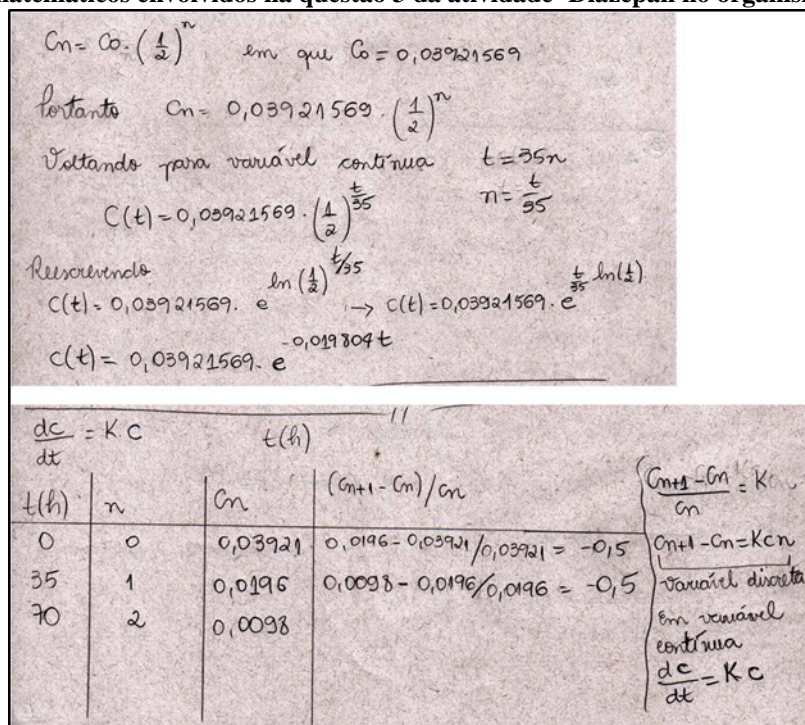 Cn = Co·(1/2)^n em que Co = 0,03921569
Portanto Cn = 0,03921569·(1/2)^n
Voltando para variável contínua t = 35n
C(t) = 0,03921569·(1/2)^(t/35) n = t/35
Reescrevendo
C(t) = 0,03921569. e^(ln(1/2)^(t/35)) → C(t) = 0,03921569. e^(t/35 ln(1/2))
C(t) = 0,03921569. e^(-0,019804t)
dc/dt = K.C t(h)
t(h) n Cn (Cn+1 - Cn)/Cn
0 0 0,03921 0,0196 - 0,03921/0,03921 = -0,5
35 1 0,0196 0,0098 - 0,0196/0,0196 = -0,5
70 2 0,0098
Cn+1 - Cn / Cn = K
Cn+1 - Cn = Kcn
variável discreta
Em variável
contínua
dc/dt = K c